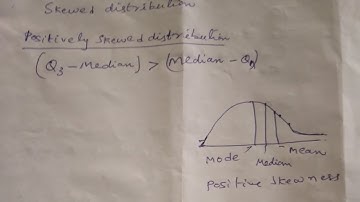 Skewed distribution
Positively skewed distribution
(Q3 - Median) > (Median - Q1)
Mode
Median
Mean
Positive Skewness